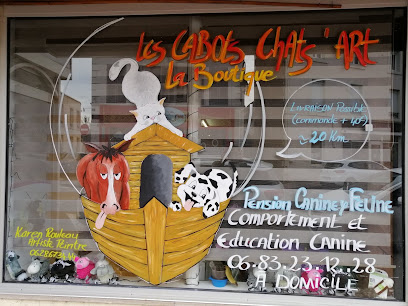 Les CABots Chats'ART
La Boutique
LIVRAISON Possible
(commande + 40€)
20 Km
Pension Canine & Feline
Comportement et
Education Canine
06.83.23.12.28
A DOMICILE
Karen Rouleau
Artiste Peintre